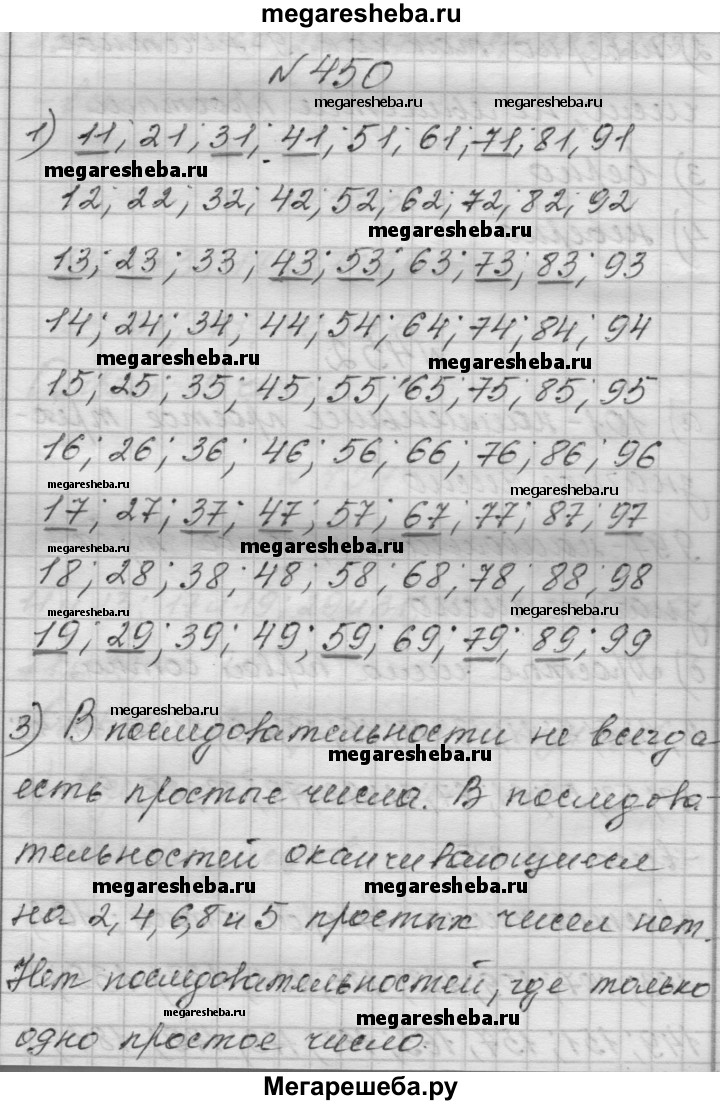 megaresheba.ru
N 450
megaresheba.ru megaresheba.ru
1) 11; 21; 31; 41; 51; 61; 71; 81; 91
megaresheba.ru
12; 22; 32; 42; 52; 62; 72; 82; 92
megaresheba.ru
13; 23; 33; 43; 53; 63; 73; 83; 93
14; 24; 34; 44; 54; 64; 74; 84; 94
megaresheba.ru megaresheba.ru
15; 25; 35; 45; 55; 65; 75; 85; 95
16; 26; 36; 46; 56; 66; 76; 86; 96
megaresheba.ru megaresheba.ru
17; 27; 37; 47; 57; 67; 77; 87; 97
megaresheba.ru megaresheba.ru
18; 28; 38; 48; 58; 68; 78; 88; 98
megaresheba.ru megaresheba.ru
19; 29; 39; 49; 59; 69; 79; 89; 99
megaresheba.ru
3) В последовательности не всегда
megaresheba.ru
есть простые числа. В последова-
тельностей оканчивающиеся
megaresheba.ru megaresheba.ru
на 2, 4, 6, 8 и 5 простых чисел нет.
Нет последовательностей, где только
megaresheba.ru megaresheba.ru
одно простое число.
Мегарешеба.ру